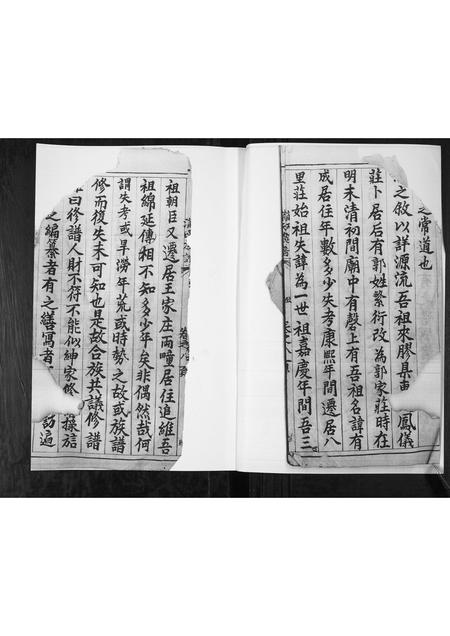 之常道也
之敘以詳源流吾祖來膠具 鳳儀
莊卜居后有郭姓繁衍改為郭家莊時在
明末清初間廟中有磬上有吾祖名諱有
成居住年數多少失考康熙年間遷居八
里莊始祖失諱為一世祖嘉慶年間吾三
祖朝臣又遷居王家庄兩疃居住追維吾
祖綿延傳相不知多少年矣非偶然哉何
謂失考或旱澇年荒或時勢之故或族譜
修而復失未可知也是故合族共議修譜
曰修譜人財不符不能似紳家修 操這
之編纂者有之繕寫者 訪遍